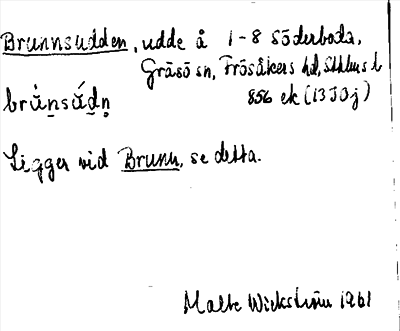 Brunnsudden, udde å 1-8 Söderboda,
Gräsö sn, Frösåkers hd, Sthlms l
856 ek (13 I 0j)
Ligger vid Brunn, se detta.
Malte Wickström 1961